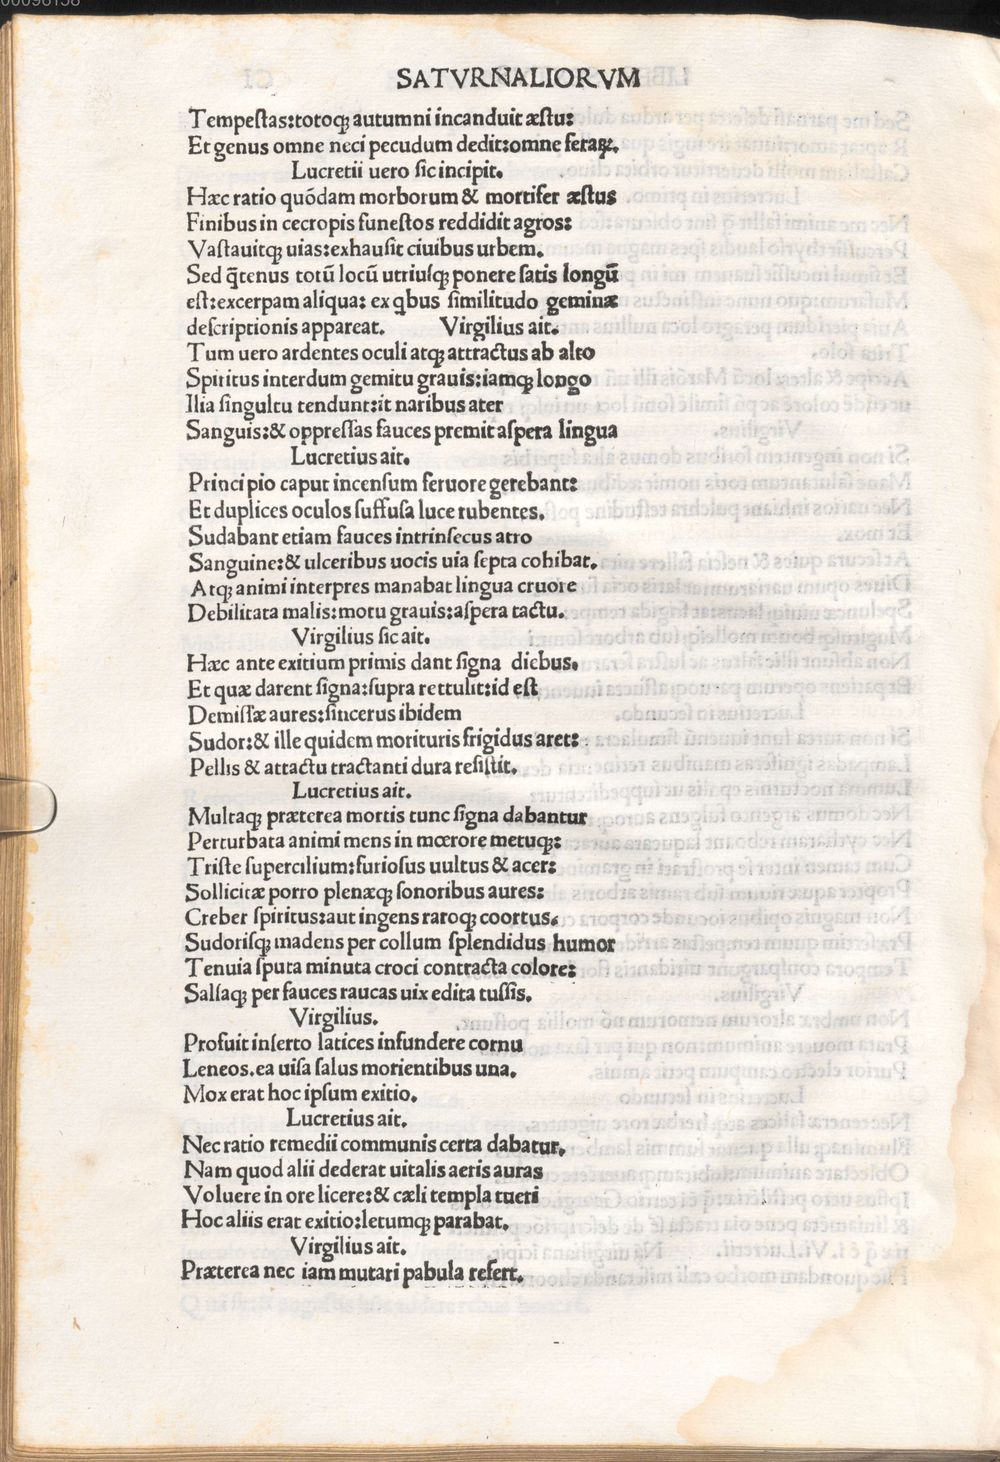 SATVRNALIORVM
Tempeſtas:totoqꝫ autumni incanduit æſtu:
Et genus omne neci pecudum dedit:omne feraꝝ.
Lucretii uero ſic incipit.
Hæc ratio quōdam morborum & mortifer æſtus
Finibus in cecropis funeſtos reddidit agros:
Vaſtauitqꝫ uias:exhauſit ciuibus urbem.
Sed q̄tenus totū locū utriuſqꝫ ponere ſatis longū
eſt:excerpam aliqua: ex qbus ſimilitudo geminæ
deſcriptionis appareat. Virgilius ait.
Tum uero ardentes oculi atqꝫ attractus ab alto
Spiritus interdum gemitu grauis:iamqꝫ longo
Ilia ſingultu tendunt:it naribus ater
Sanguis:& oppreſſas fauces premit aſpera lingua
Lucretius ait.
Principio caput incenſum feruore gerebant:
Et duplices oculos ſuffuſa luce rubentes.
Sudabant etiam fauces intrinſecus atro
Sanguine:& ulceribus uocis uia ſepta cohibat.
Atqꝫ animi interpres manabat lingua cruore
Debilitata malis:motu grauis:aſpera tactu.
Virgilius ſic ait.
Hæc ante exitium primis dant ſigna diebus.
Et quæ darent ſigna:ſupra rettulit:id eſt
Demiſſæ aures:ſincerus ibidem
Sudor:& ille quidem morituris frigidus aret:
Pellis & attactu tractanti dura reſiſtit.
Lucretius ait.
Multaqꝫ præterea mortis tunc ſigna dabantur
Perturbata animi mens in mœrore metuqꝫ:
Triſte ſupercilium:furioſus uultus & acer:
Sollicitæ porro plenæqꝫ ſonoribus aures:
Creber ſpiritus:aut ingens raroqꝫ coortus.
Sudoriſqꝫ madens per collum ſplendidus humor
Tenuia ſputa minuta croci contracta colore:
Salſaqꝫ per fauces raucas uix edita tuſſis.
Virgilius.
Profuit inſerto latices infundere cornu
Leneos.ea uiſa ſalus morientibus una.
Mox erat hoc ipſum exitio.
Lucretius ait.
Nec ratio remedii communis certa dabatur.
Nam quod alii dederat uitalis aeris auras
Voluere in ore licere:& cæli templa tueri
Hoc aliis erat exitio:letumqꝫ parabat.
Virgilius ait.
Præterea nec iam mutari pabula refert.